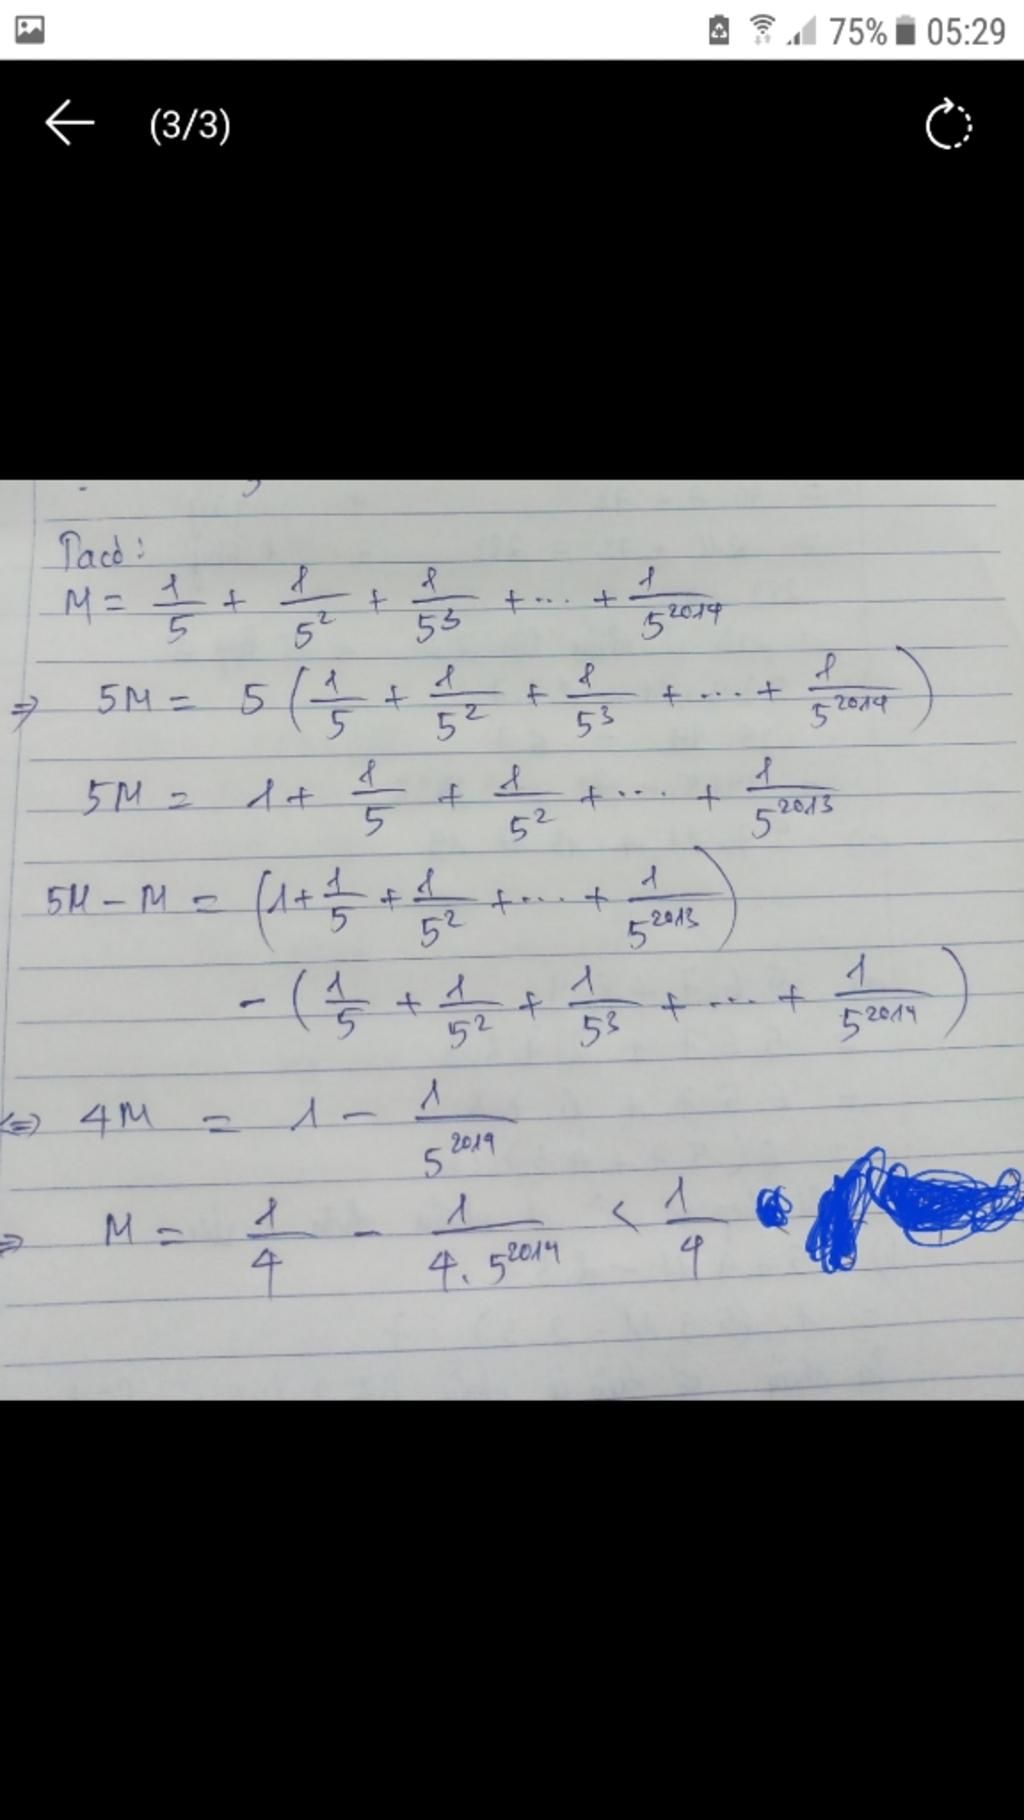 75% 05:29
(3/3)
Ta có:
M = 1/5 + 1/5² + 1/5³ + ... + 1/5²⁰¹⁴
⇒ 5M = 5 (1/5 + 1/5² + 1/5³ + ... + 1/5²⁰¹⁴)
5M = 1 + 1/5 + 1/5² + ... + 1/5²⁰¹³
5M - M = (1 + 1/5 + 1/5² + ... + 1/5²⁰¹³)
- (1/5 + 1/5² + 1/5³ + ... + 1/5²⁰¹⁴)
⇔ 4M = 1 - 1/5²⁰¹⁴
⇒ M = 1/4 - 1/(4.5²⁰¹⁴) < 1/4